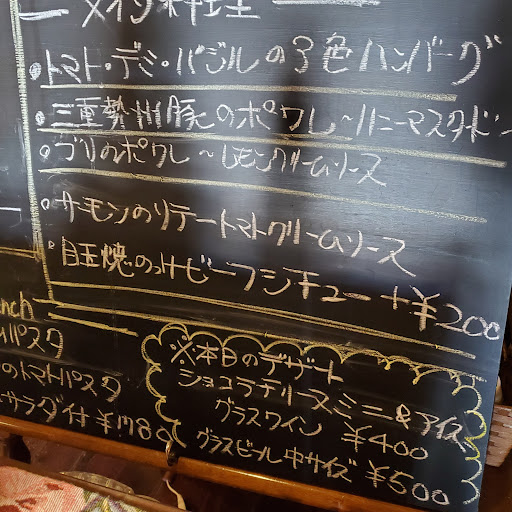 メイン料理
・トマト・デミ・バジルの3色ハンバーグ
・三重勢州豚のポワレ〜ハニーマスタード
・ブリのポワレ〜レモンクリームソース
・サーモンのソテートマトクリームソース
・目玉焼のっけビーフシチュー+¥200
nch
パスタ
のトマトパスタ
サラダ付 ¥1780
※本日のデザート
ショコラテリーヌミニ&アイス
グラスワイン ¥400
グラスビール中サイズ ¥500